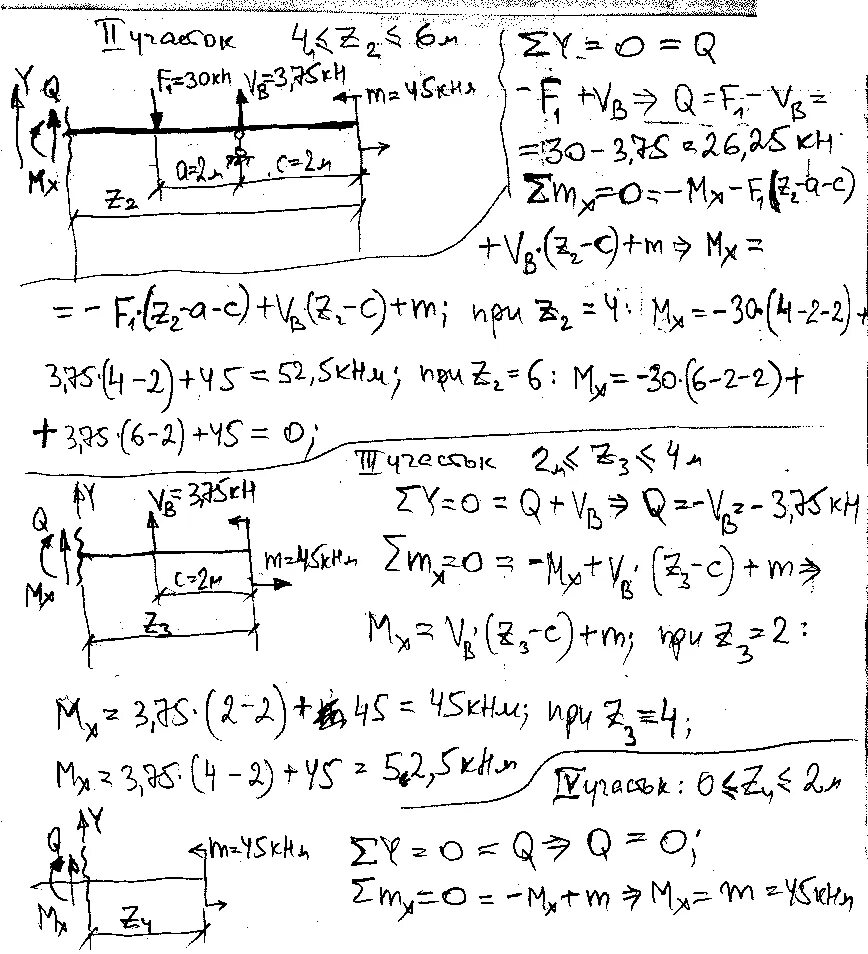 II участок 4 ≤ Z₂ ≤ 6м
Y Q F₁=30кН V_B=3,75кН m=45кНм
Mx a=2м c=2м
Z₂
ΣY=0=Q
-F₁+V_B ⇒ Q=F₁-V_B=
=30-3,75=26,25кН
Σmx=0=-Mx-F₁(Z₂-a-c)
+V_B·(Z₂-c)+m ⇒ Mx=
=-F₁·(Z₂-a-c)+V_B(Z₂-c)+m; при Z₂=4: Mx=-30·(4-2-2)+
3,75·(4-2)+45=52,5кНм; при Z₂=6: Mx=-30·(6-2-2)+
+3,75·(6-2)+45=0;
III участок 2м ≤ Z₃ ≤ 4м
Y V_B=3,75кН
Q m=45кНм
Mx c=2м
Z₃
ΣY=0=Q+V_B ⇒ Q=-V_B=-3,75кН
Σmx=0=-Mx+V_B·(Z₃-c)+m ⇒
Mx=V_B·(Z₃-c)+m; при Z₃=2:
Mx=3,75·(2-2)+45=45кНм; при Z₃=4;
Mx=3,75·(4-2)+45=52,5кНм
IV участок: 0 ≤ Z₄ ≤ 2м
Y
Q m=45кНм
Mx Z₄
ΣY=0=Q ⇒ Q=0;
Σmx=0=-Mx+m ⇒ Mx=m=45кНм